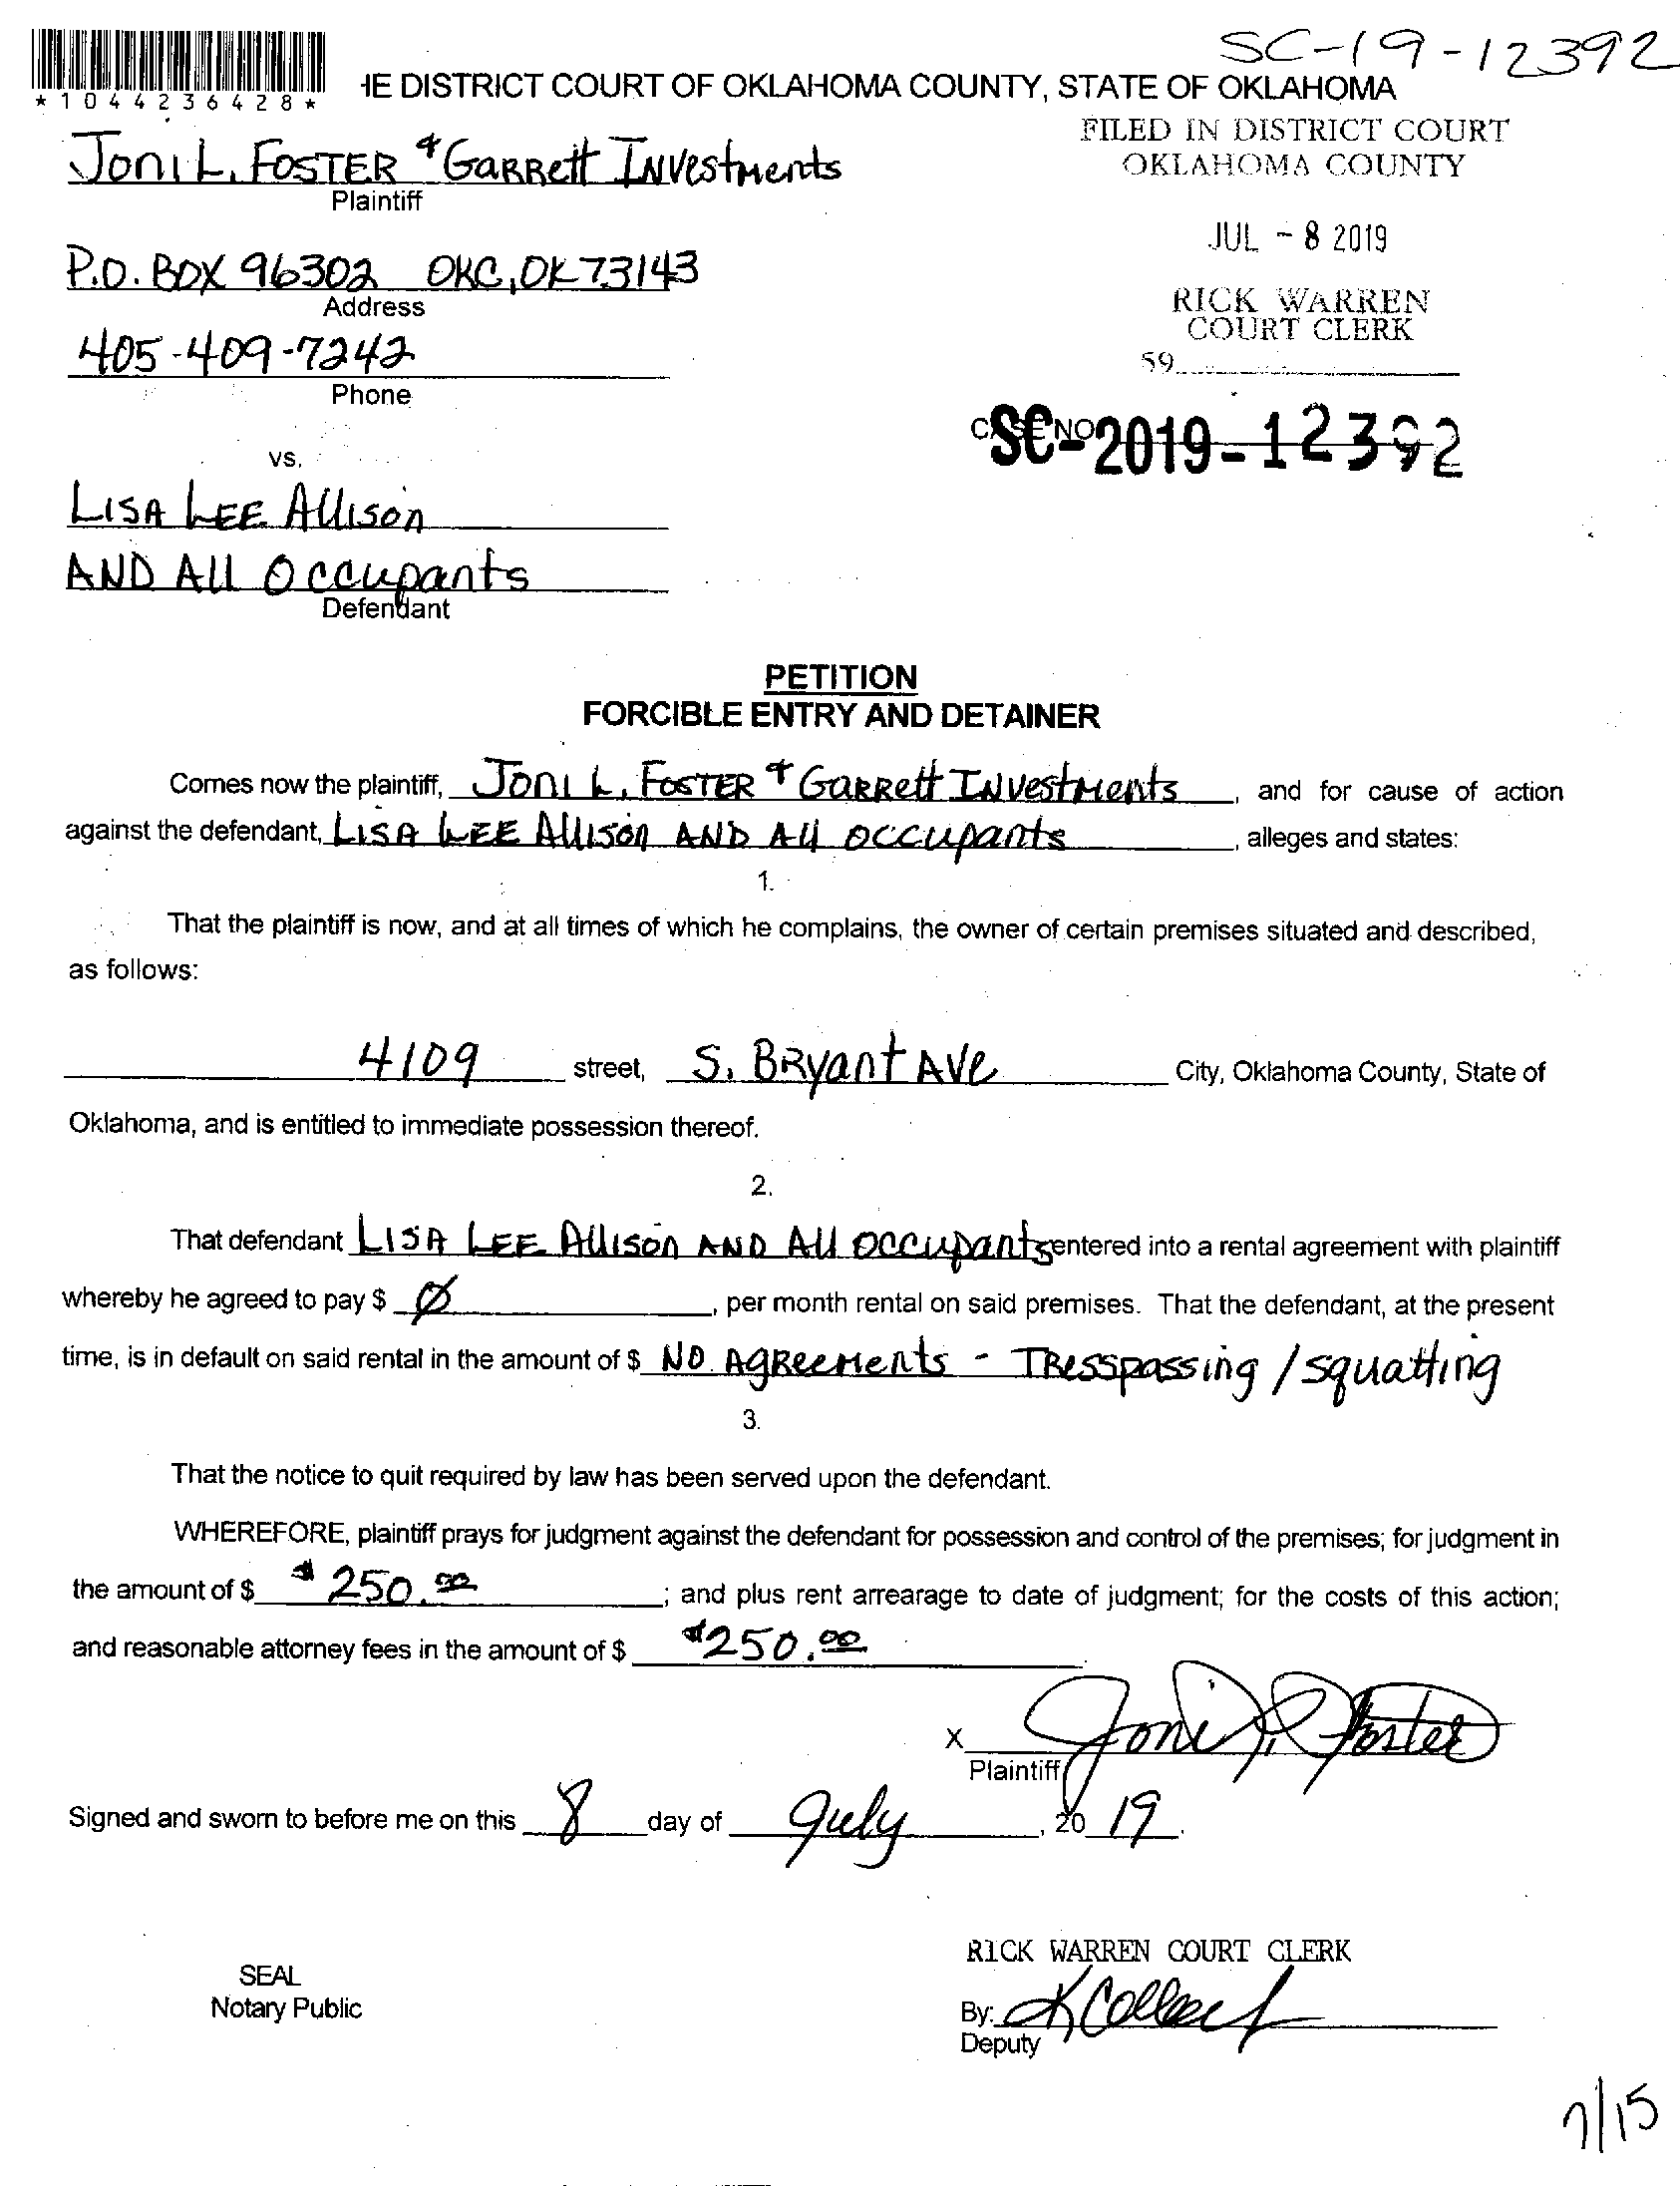 SC-19-12392
*1044236428*
HE DISTRICT COURT OF OKLAHOMA COUNTY, STATE OF OKLAHOMA
FILED IN DISTRICT COURT
OKLAHOMA COUNTY
Joni L. Foster & Garrett Investments
Plaintiff
JUL - 8 2019
P.O. Box 96302 OKC, OK 73143
Address
RICK WARREN
COURT CLERK
405-409-7242
59
Phone
CASE NO SC-2019-12392
vs.
Lisa Lee Allison
AND All Occupants
Defendant
PETITION
FORCIBLE ENTRY AND DETAINER
Comes now the plaintiff, Joni L. Foster & Garrett Investments, and for cause of action
against the defendant, Lisa Lee Allison AND All occupants, alleges and states:
1.
That the plaintiff is now, and at all times of which he complains, the owner of certain premises situated and described,
as follows:
4109 street, S. Bryant Ave City, Oklahoma County, State of
Oklahoma, and is entitled to immediate possession thereof.
2.
That defendant Lisa Lee Allison AND All occupants entered into a rental agreement with plaintiff
whereby he agreed to pay $ Ø, per month rental on said premises. That the defendant, at the present
time, is in default on said rental in the amount of $ NO Agreements - Tresspassing / squatting
3.
That the notice to quit required by law has been served upon the defendant.
WHEREFORE, plaintiff prays for judgment against the defendant for possession and control of the premises; for judgment in
the amount of $ $250.00; and plus rent arrearage to date of judgment; for the costs of this action;
and reasonable attorney fees in the amount of $ $250.00.
X Joni L. Foster
Plaintiff
Signed and sworn to before me on this 8 day of July, 2019.
RICK WARREN COURT CLERK
SEAL
Notary Public
By:
Deputy
7/15